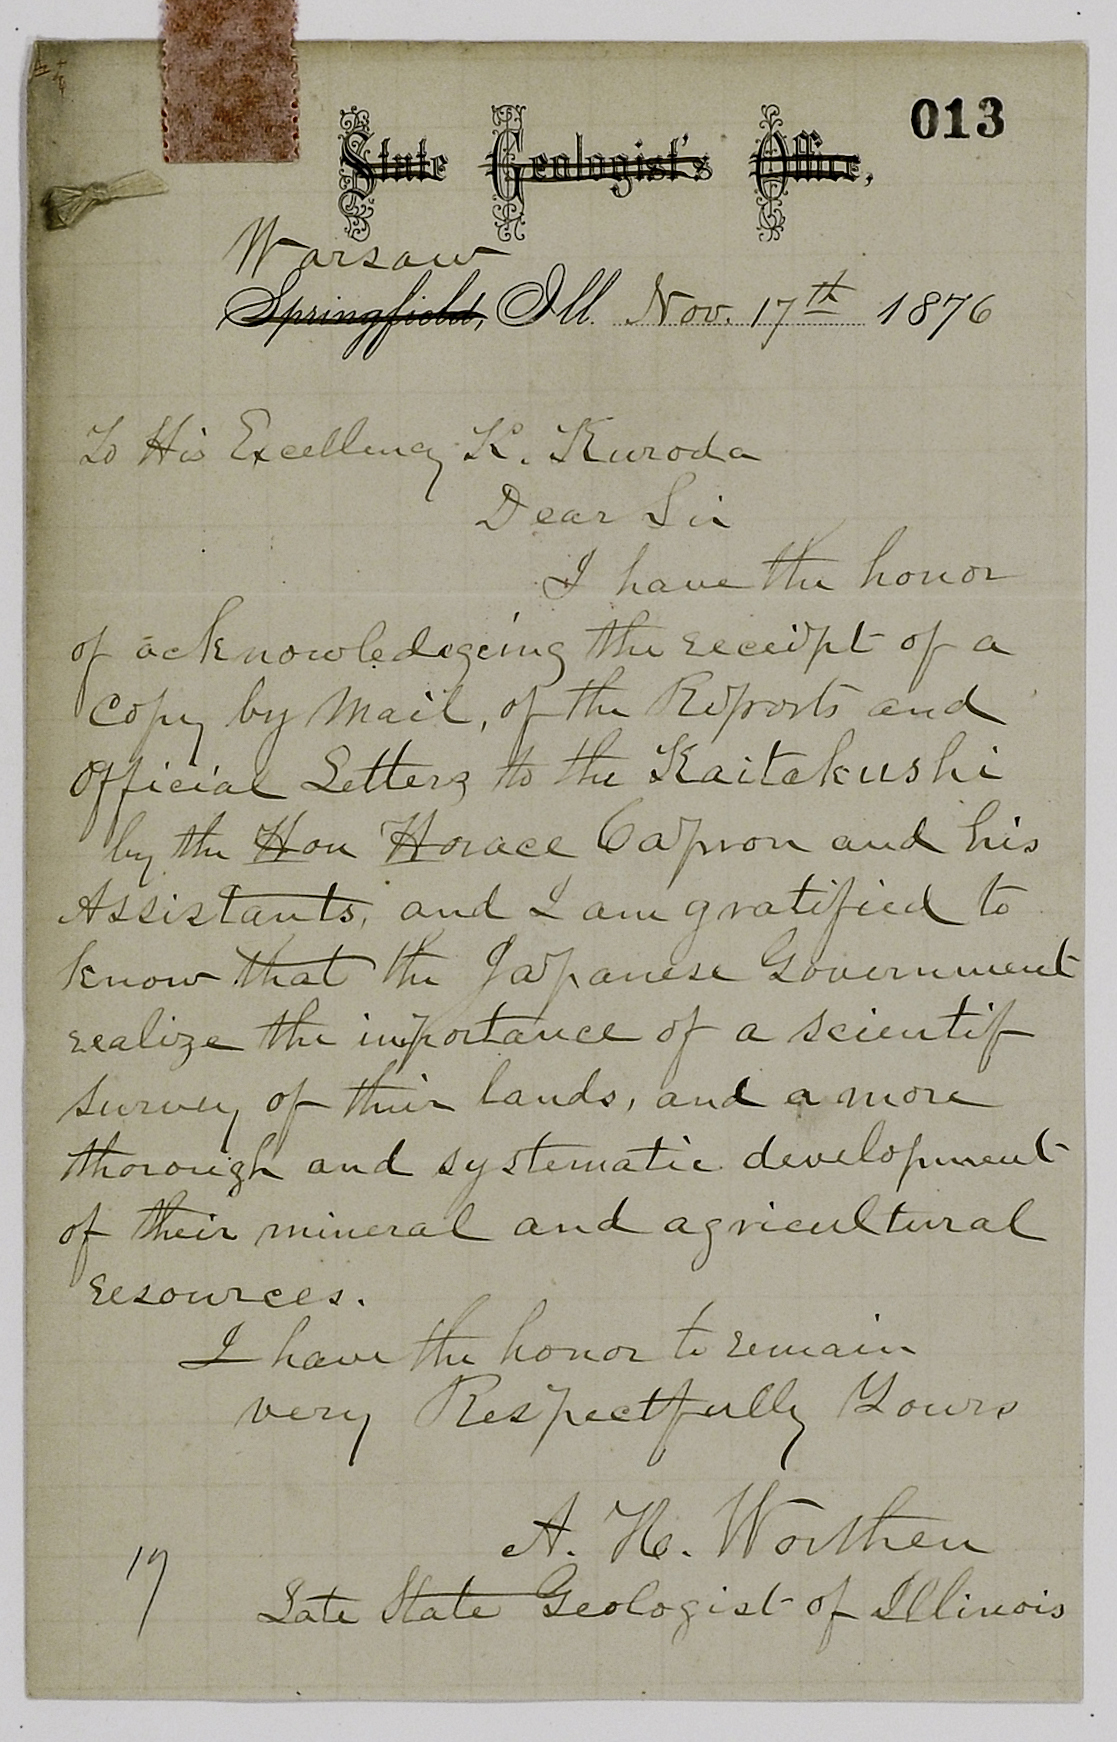 013
State Geologist's Office,
Warsaw
Springfield, Ill. Nov. 17th 1876
To His Excellency K. Kuroda
Dear Sir
I have the honor
of acknowledegeing the receipt of a
copy by Mail, of the Reports and
Official Letters to the Kaitakushi
by the Hon Horace Capron and his
Assistants, and I am gratified to
know that the Japanese Government
realize the importance of a scientif
survey of their lands, and a more
thorough and systematic development
of their mineral and agricultural
resources.
I have the honor to remain
very Respectfully Yours
A. H. Worthen
17
Late State Geologist of Illinois